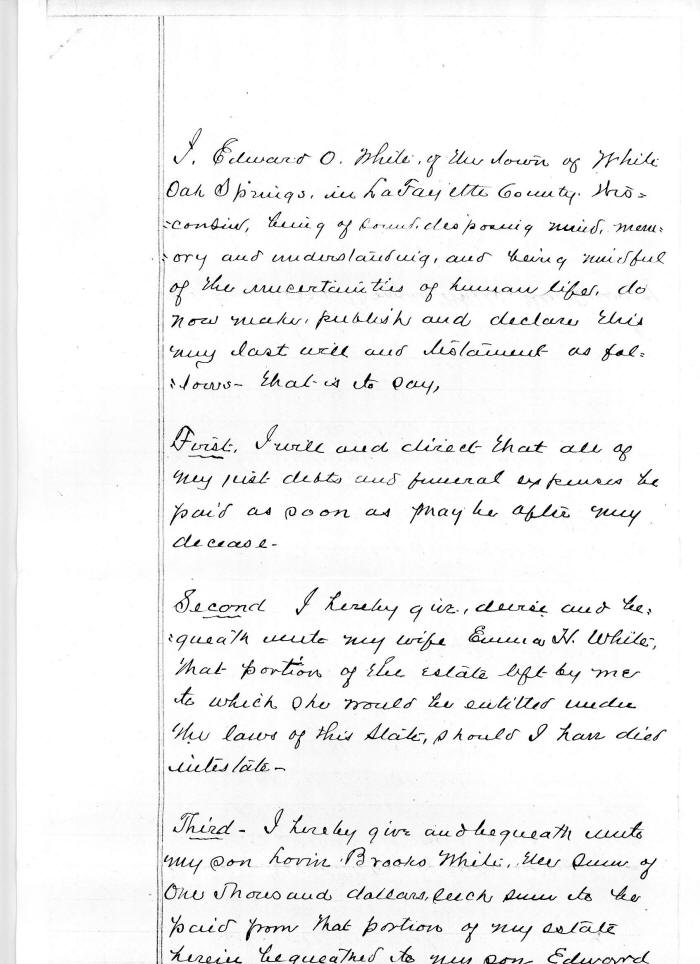 I, Edward O. White, of the town of White
Oak Springs, in LaFayette County. Wis=
=consin, being of sound, disposing mind, mem=
=ory and understanding, and being mindful
of the uncertainties of human life, do
now make, publish and declare this
my last will and testament as fol=
=lows- that is to say,
First, I will and direct that all of
my just debts and funeral expenses be
paid as soon as may be after my
decease-
Second I hereby give, devise and be=
=queath unto my wife Emma H. White,
that portion of the estate left by me
to which she would be entitled under
the laws of this State, should I have died
intestate-
Third- I hereby give and bequeath unto
my son Lovin Brooks White, the sum of
One thousand dollars, such sum to be
paid from that portion of my estate
herein bequeathed to my son Edward